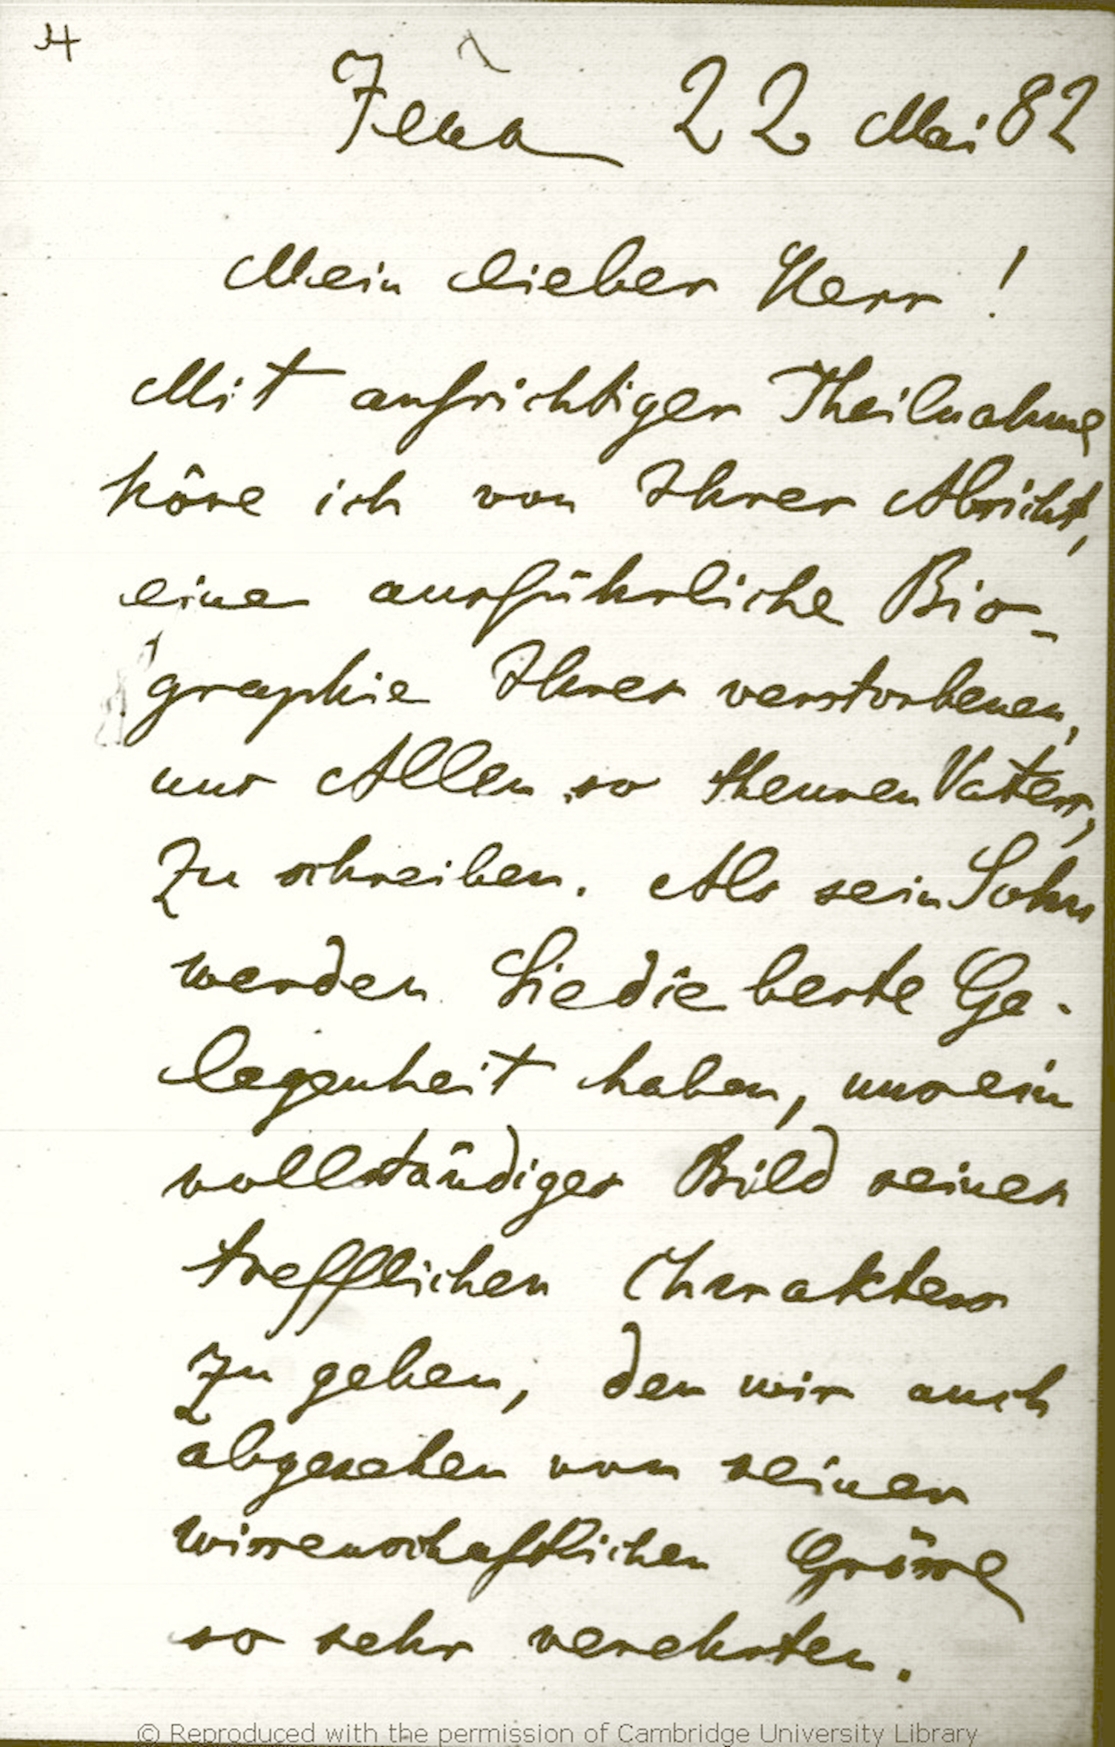 4
Jena 22 Mai 82
Mein lieber Herr!
Mit aufrichtiger Theilnahme
höre ich von Ihrer Absicht,
eine ausführliche Bio-
graphie Ihres verstorbenen,
uns Allen so theuren Vaters,
zu schreiben. Als sein Sohn
werden Sie die beste Ge-
legenheit haben, uns ein
vollständiges Bild seines
trefflichen Charakters
zu geben, den wir auch
abgesehen von seiner
wissenschaftlichen Grösse
so sehr verehrten.
© Reproduced with the permission of Cambridge University Library